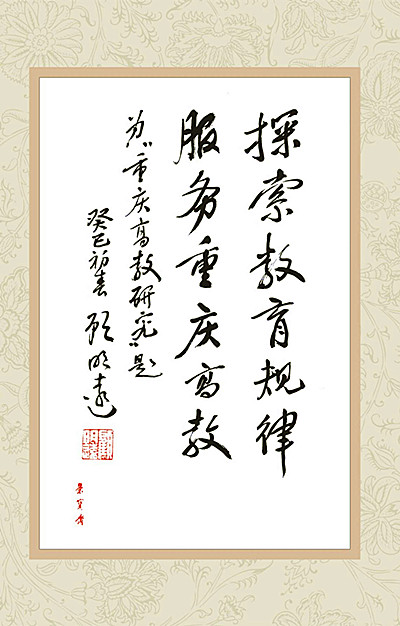 探索教育规律
服务重庆高教
为“重庆高教研究”题
癸巳初春 顾明远
荣宝斋